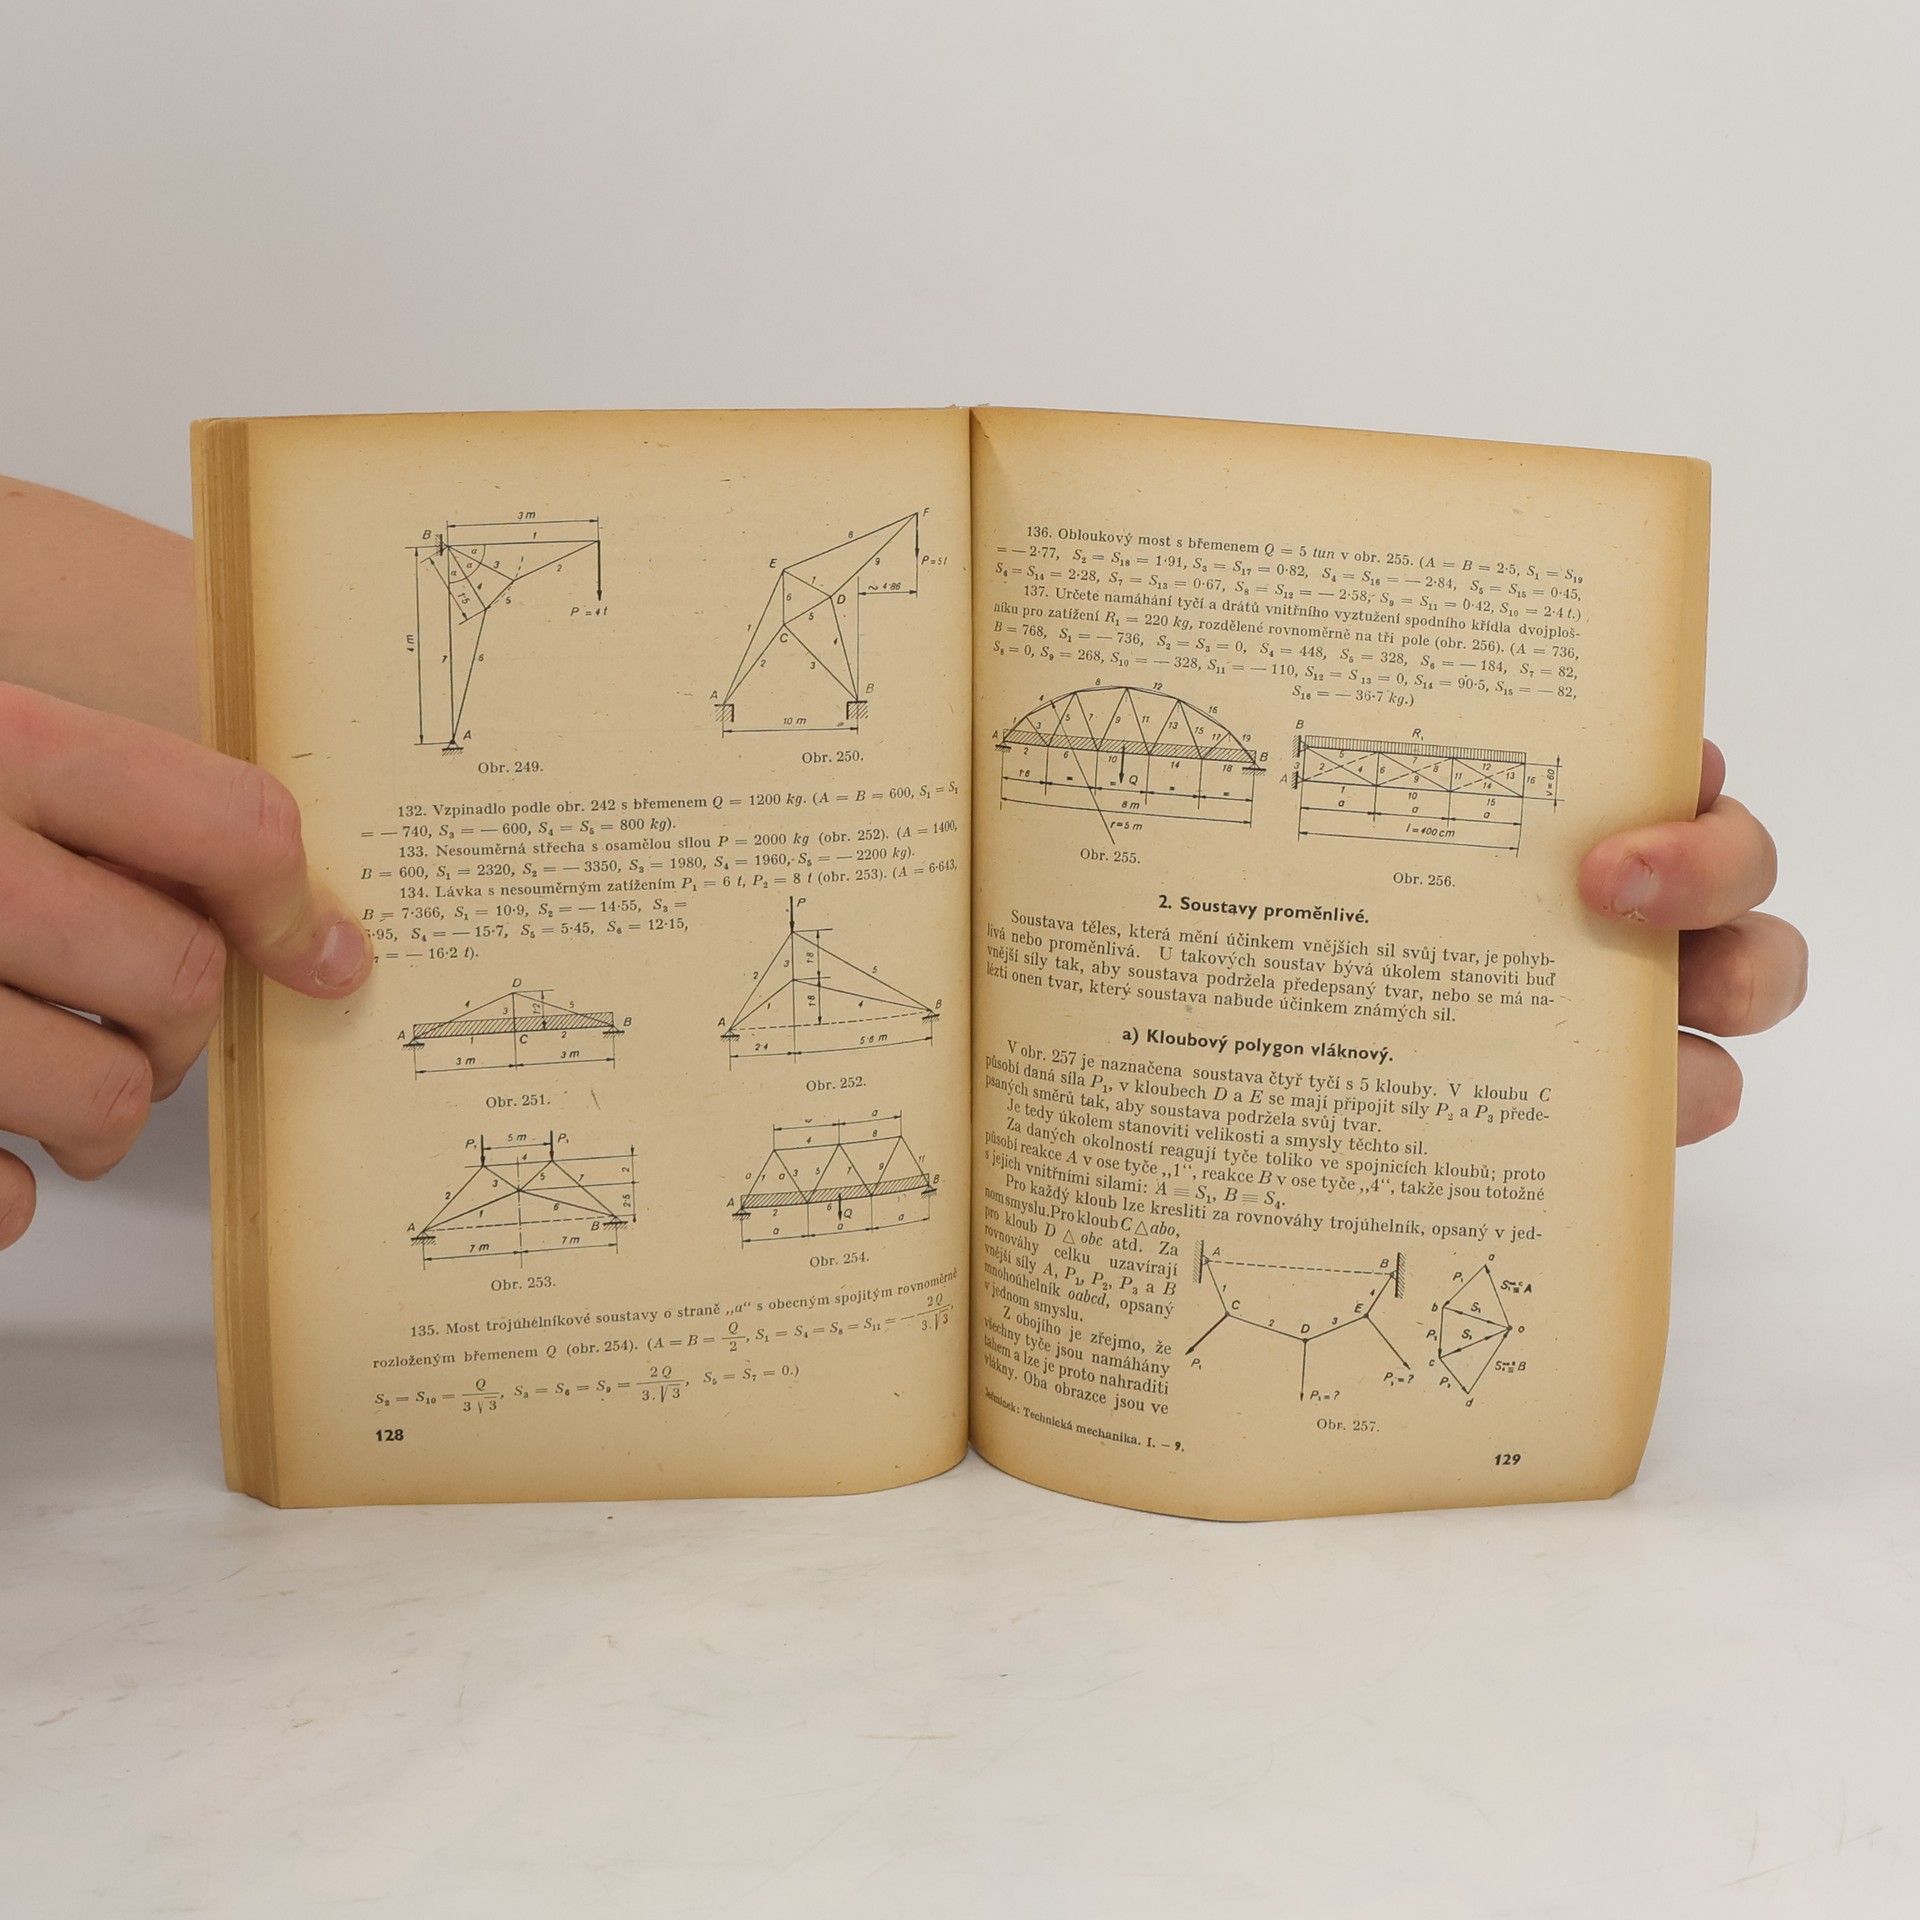 3 m
B
1
α
α
α
3
2
4
5
1·5
P = 4 t
4 m
7
6
A
Obr. 249.
F
8
E
9
P=5t
7
D
~ 4·86
6
5
1
C
4
2
3
A
B
10 m
=
Obr. 250.
132. Vzpinadlo podle obr. 242 s břemenem Q = 1200 kg. (A = B = 600, S₁ = S₂
= — 740, S₃ = — 600, S₄ = S₅ = 800 kg).
133. Nesouměrná střecha s osamělou silou P = 2000 kg (obr. 252). (A = 1400,
B = 600, S₁ = 2320, S₂ = — 3350, S₃ = 1980, S₄ = 1960, S₅ = — 2200 kg).
134. Lávka s nesouměrným zatížením P₁ = 6 t, P₂ = 8 t (obr. 253). (A = 6·643,
B = 7·366, S₁ = 10·9, S₂ = — 14·55, S₃ =
·95, S₄ = — 15·7, S₅ = 5·45, S₆ = 12·15,
₇ = — 16·2 t).
D
4
3
1·2
5
A
1
C
2
B
3 m
3 m
Obr. 251.
P
2
3
1·8
5
1
1·8
4
A
B
2·4
5·6 m
Obr. 252.
P₁
5 m
P₁
4
2
2
3
5
7
1
6
2·5
A
B
7 m
7 m
Obr. 253.
a
4
8
a
1
a
3
5
7
9
11
A
2
6
Q
B
a
a
a
Obr. 254.
135. Most trojúhelníkové soustavy o straně „a“ s obecným spojitým rovnoměrně
rozloženým břemenem Q (obr. 254). (A = B = Q/2, S₁ = S₄ = S₈ = S₁₁ = — 2 Q/3.√3,
S₂ = S₁₀ = Q/3 √3, S₃ = S₆ = S₉ = 2 Q/3.√3, S₅ = S₇ = 0.)
128
136. Obloukový most s břemenem Q = 5 tun v obr. 255. (A = B = 2·5, S₁ = S₁₉
= — 2·77, S₂ = S₁₈ = 1·91, S₃ = S₁₇ = 0·82, S₄ = S₁₆ = — 2·84, S₅ = S₁₅ = 0·45,
S₆ = S₁₄ = 2·28, S₇ = S₁₃ = 0·67, S₈ = S₁₂ = — 2·58, S₉ = S₁₁ = 0·42, S₁₀ = 2·4 t.)
137. Určete namáhání tyčí a drátů vnitřního vyztužení spodního křídla dvojploš-
níku pro zatížení R₁ = 220 kg, rozdělené rovnoměrně na tři pole (obr. 256). (A = 736,
B = 768, S₁ = — 736, S₂ = S₃ = 0, S₄ = 448, S₅ = 328, S₆ = — 184, S₇ = 82,
S₈ = 0, S₉ = 268, S₁₀ = — 328, S₁₁ = — 110, S₁₂ = S₁₃ = 0, S₁₄ = 90·5, S₁₅ = — 82,
S₁₆ = — 36·7 kg.)
8
12
4
16
1
3
5
7
9
11
13
15
17
19
A
2
6
10
14
18
B
1·6
=
=
Q
=
=
8 m
r=5 m
Obr. 255.
B
R₁
3
5
7
12
2
4
6
8
11
13
16
A
9
14
1
10
15
v=60
a
a
a
l=400 cm
Obr. 256.
2. Soustavy proměnlivé.
Soustava těles, která mění účinkem vnějších sil svůj tvar, je pohyb-
livá nebo proměnlivá. U takových soustav bývá úkolem stanoviti buď
vnější síly tak, aby soustava podržela předepsaný tvar, nebo se má na-
lézti onen tvar, který soustava nabude účinkem známých sil.
a) Kloubový polygon vláknový.
V obr. 257 je naznačena soustava čtyř tyčí s 5 klouby. V kloubu C
působí daná síla P₁, v kloubech D a E se mají připojit síly P₂ a P₃ přede-
psaných směrů tak, aby soustava podržela svůj tvar.
Je tedy úkolem stanoviti velikosti a smysly těchto sil.
Za daných okolností reagují tyče toliko ve spojnicích kloubů; proto
působí reakce A v ose tyče „1“, reakce B v ose tyče „4“, takže jsou totožné
s jejich vnitřními silami: A ≡ S₁, B ≡ S₄.
Pro každý kloub lze kresliti za rovnováhy trojúhelník, opsaný v jed-
nom smyslu. Pro kloub C △ abo,
pro kloub D △ obc atd. Za
rovnováhy celku uzavírají
vnější síly A, P₁, P₂, P₃ a B
mnohoúhelník oabcd, opsaný
v jednom smyslu.
Z obojího je zřejmo, že
všechny tyče jsou namáhány
tahem a lze je proto nahraditi
vlákny. Oba obrazce jsou ve
A
B
1
C
2
D
3
E
4
P₁
P₂=?
P₃=?
a
P₁
b
S₂
o
P₂
S₃
c
P₃
d
Obr. 257.
Technická mechanika. I. – 9.
129